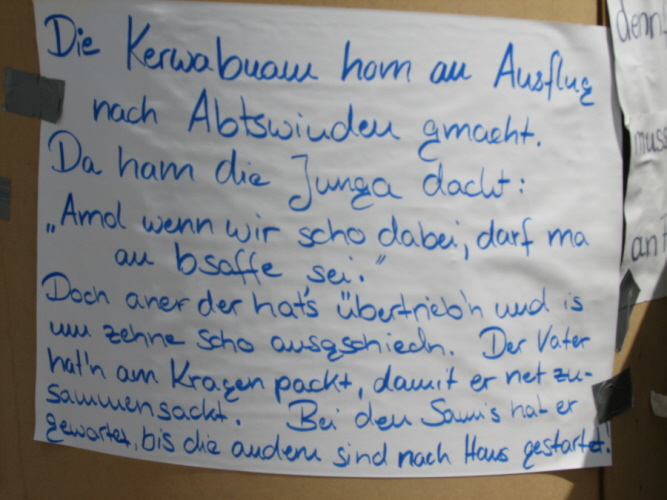 Die Kerwabuam hom an Ausflug
nach Abtswinden gmacht.
Da ham die Junga dacht:
„Amol wenn wir scho dabei, darf ma
an bsaffe sei."
Doch aner der hat's übertrieb'n und is
um zehne scho ausgschiedn. Der Vater
hat'n am Kragen packt, damit er net zu-
sammensackt. Bei den Saum's hat er
gewartet, bis die andern sind nach Haus gestartet!
denn
muss
an